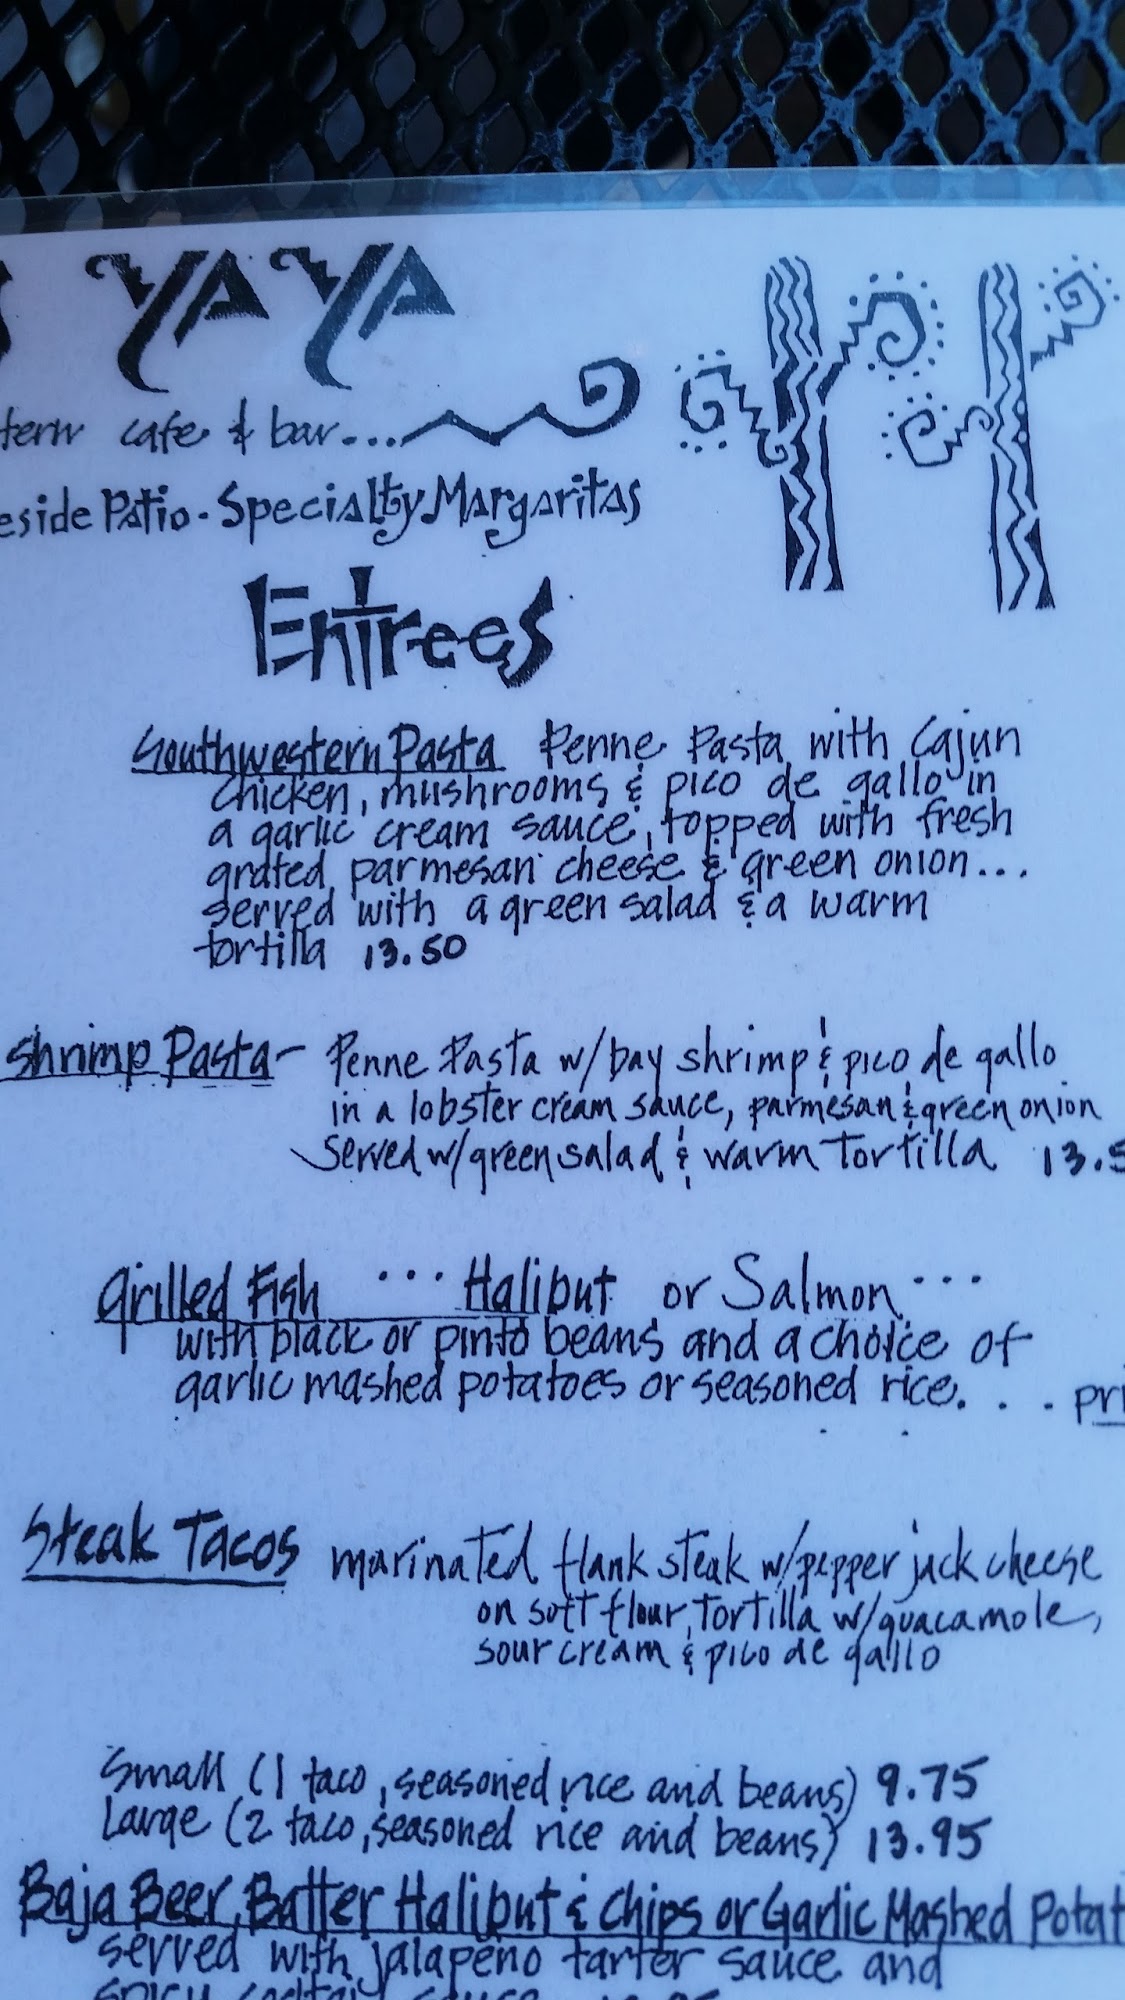 YAYA
cafe & bar...
Patio - Specialty Margaritas
Entrees
Southwestern Pasta Penne Pasta with Cajun
chicken, mushrooms & pico de gallo in
a garlic cream sauce, topped with fresh
grated parmesan cheese & green onion...
served with a green salad & a warm
tortilla 13.50
Shrimp Pasta - Penne Pasta w/bay shrimp & pico de gallo
in a lobster cream sauce, parmesan & green onion
served w/green salad & warm tortilla 13.5
Grilled Fish ... Halibut or Salmon ...
with black or pinto beans and a choice of
garlic mashed potatoes or seasoned rice. . . . pri
Steak Tacos marinated flank steak w/pepper jack cheese
on soft flour tortilla w/guacamole,
sour cream & pico de gallo
Small (1 taco, seasoned rice and beans) 9.75
Large (2 taco, seasoned rice and beans) 13.95
Baja Beer Batter Halibut & Chips or Garlic Mashed Potat
served with jalapeno tarter sauce and